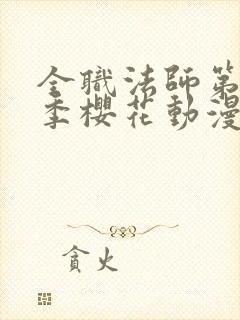 全職法師第
季櫻花動漫
貪火